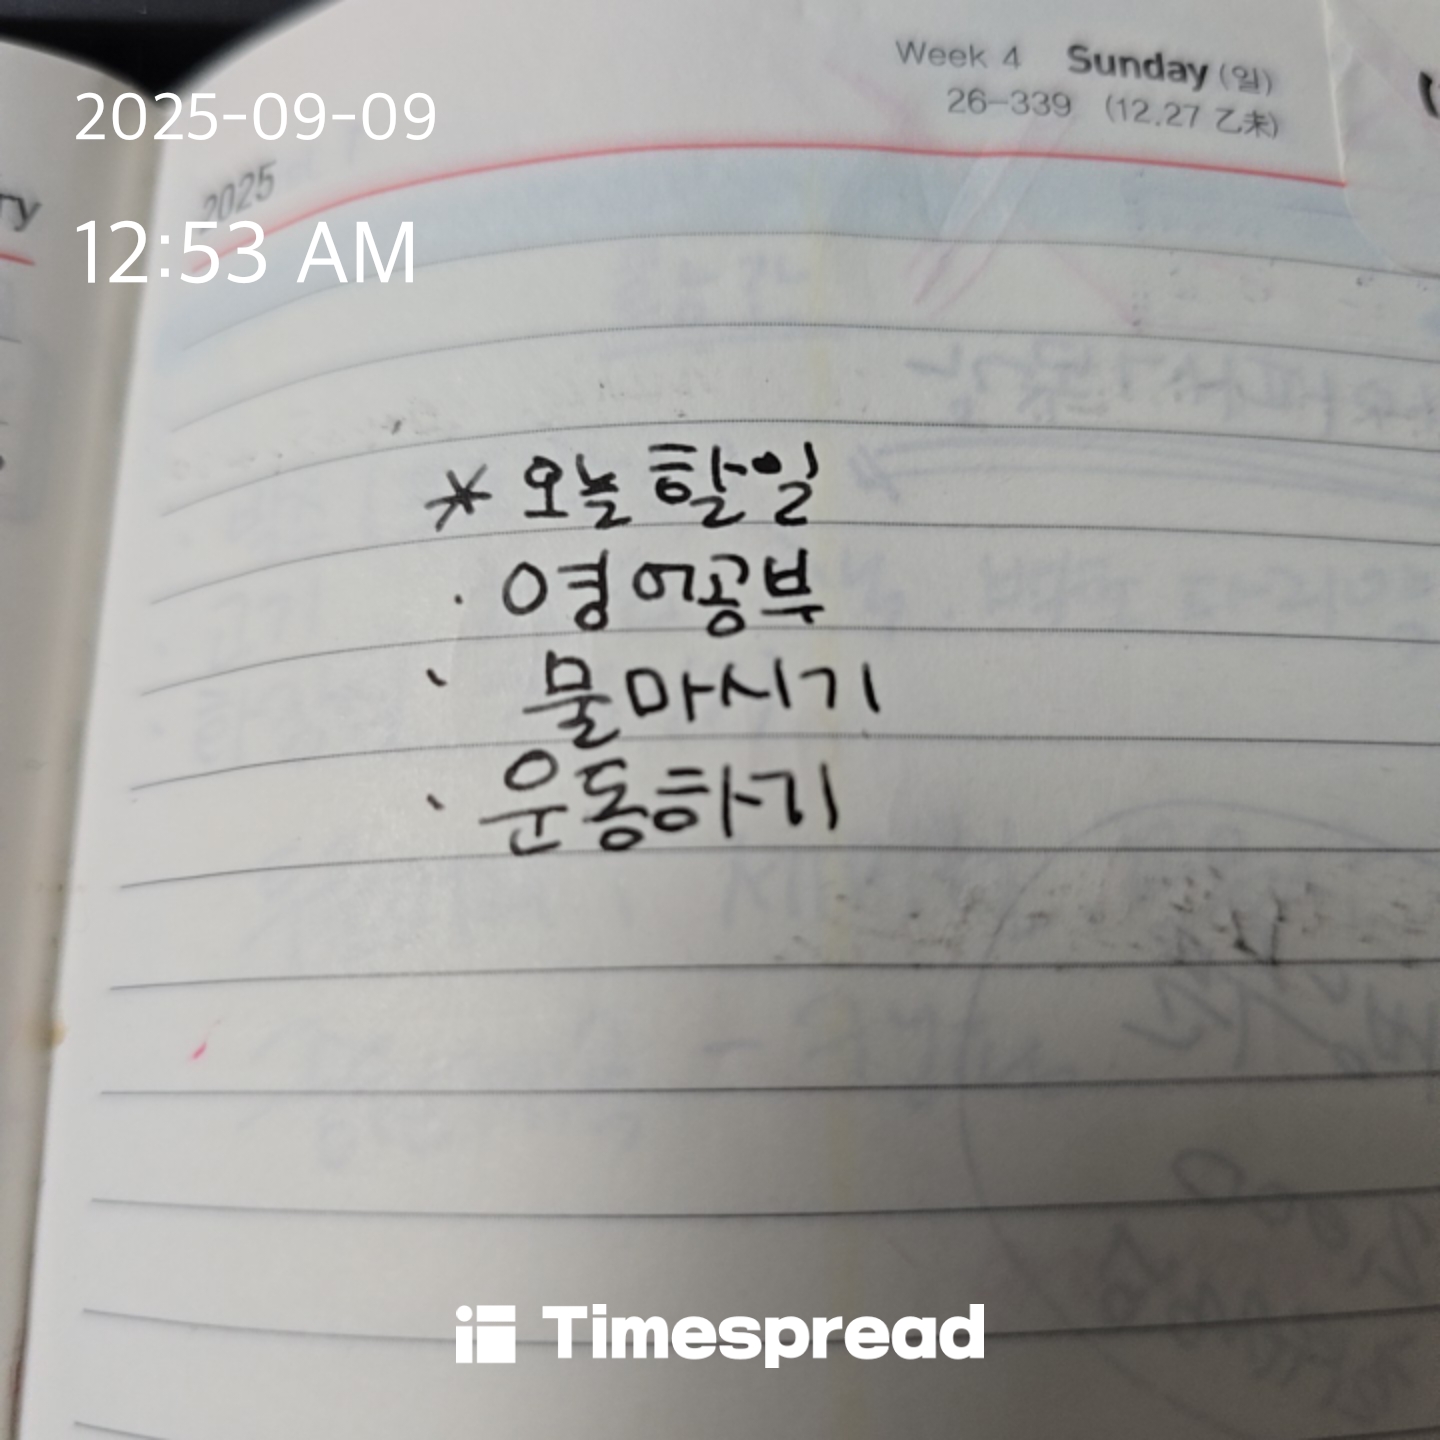 Week 4 Sunday (일)
26-339 (12.27 乙未)
2025-09-09
2025
ry
12:53 AM
* 오늘 할일
· 영어공부
· 물마시기
· 운동하기
Timespread